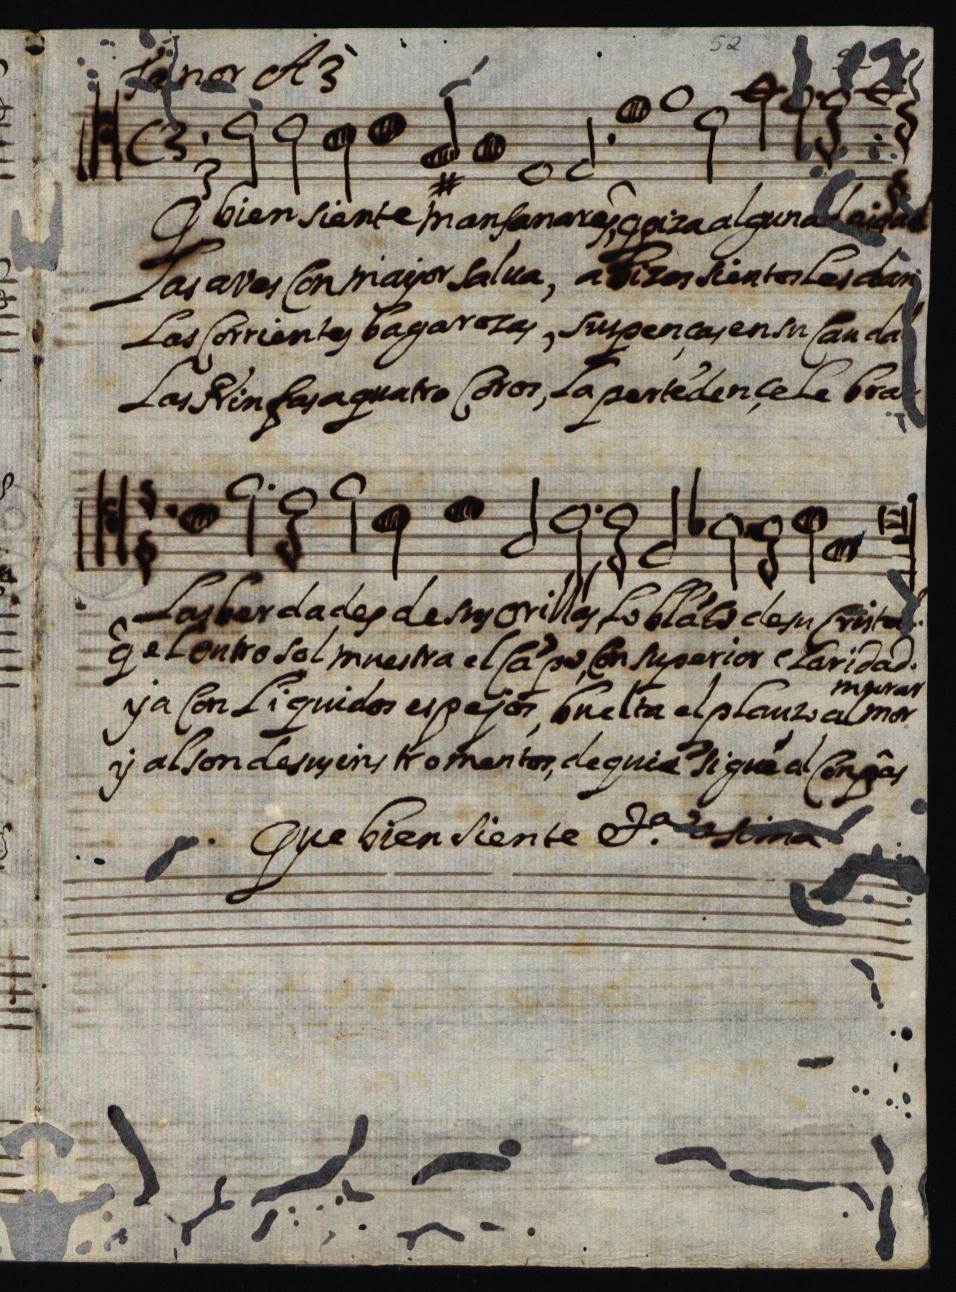 52
Tenor A 3
Q bien siente mansanares, q piza alguna deidad
Las aves con mayor salua, a bizos sientos les dan
Las corrientes bagarozas, suspenças en su caudal
Las Ninfas a quatro coros, La
Las berdades de sus orillas, Lo bláco de su cristal.
q̃ el outro sol muestra el cãpo, con superior claridad.
y a con Liquidos espejos, buelta el plauzo al mor
murar
y al son de sus instromentos, de quiẽ sigue al compás
Que bien siente &.ª